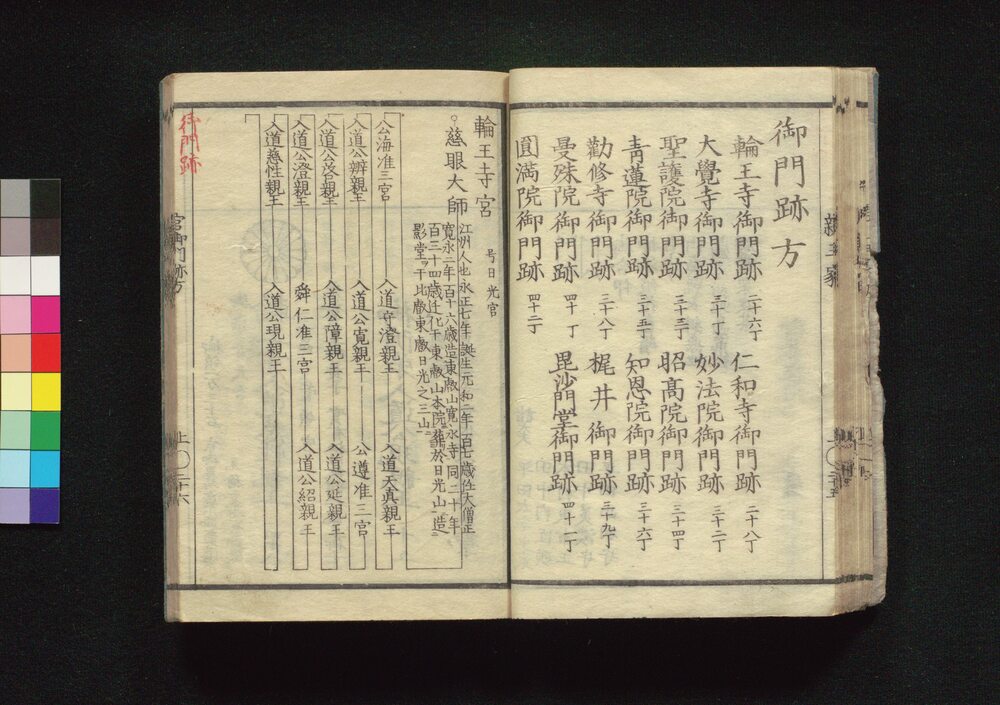 御門跡方
輪王寺御門跡 二十六丁 仁和寺御門跡 二十八丁
大覺寺御門跡 三十丁 妙法院御門跡 三十二丁
聖護院御門跡 三十三丁 昭高院御門跡 三十四丁
青蓮院御門跡 三十五丁 知恩院御門跡 三十六丁
勸修寺御門跡 三十八丁 梶井御門跡 三十九丁
曼殊院御門跡 四十丁 毘沙門堂御門跡 四十一丁
圓満院御門跡 四十二丁
親王家
輪王寺宮 号日光宮
慈眼大師
江州人也永正七年誕生元和二年百七歳任大僧正
寛永二年百十六歳造東叡山寛永寺同二十年
百三十四歳迁化于東叡山本院葬於日光山造
影堂于比叡東叡日光之三山
公海准三宮 入道守澄親王 入道天真親王
入道公辨親王 入道公寛親王 公遵准三宮
入道公啓親王 入道公障親王 入道公延親王
入道公澄親王 舜仁准三宮 入道公紹親王
入道慈性親王 入道公現親王
宮御門跡方
上〇二十六
御門跡